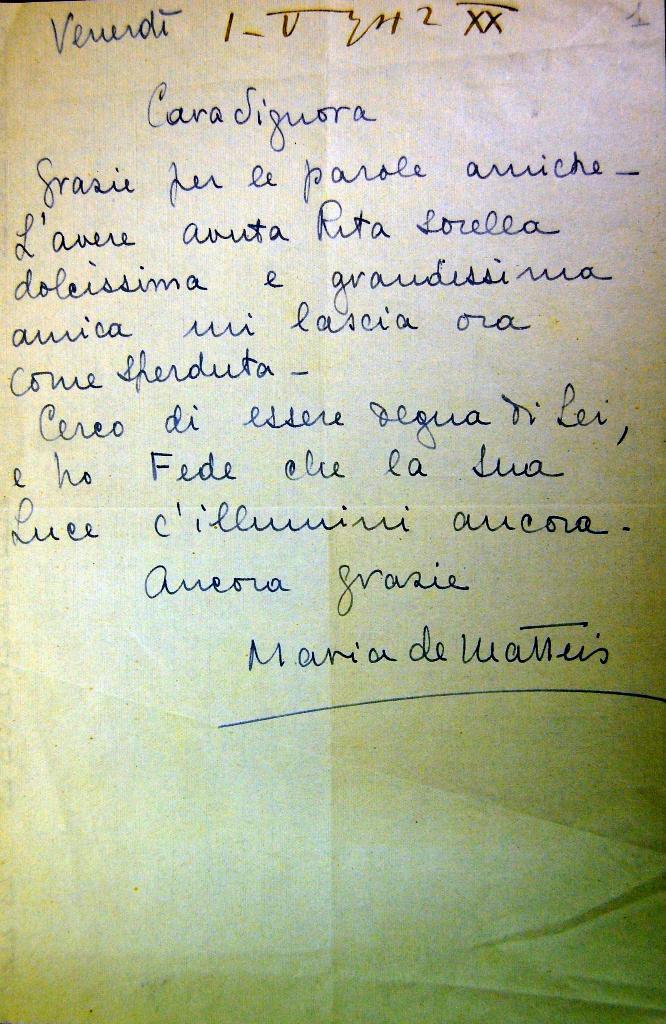 Venerdì 1-V-1942 XX
1
Cara Signora
Grazie per le parole amiche-
L'avere avuta Rita sorella
dolcissima e grandissima
amica mi lascia ora
come sperduta-
Cerco di essere degna di Lei,
e ho Fede che la sua
Luce c'illumini ancora.
Ancora grazie
Maria de Matteis